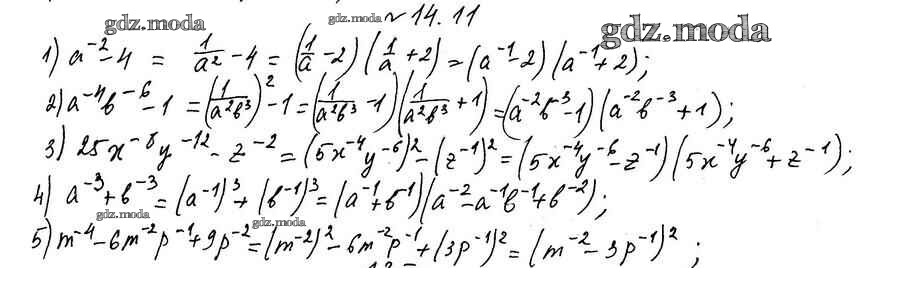 gdz.moda gdz.moda № 14.11 gdz.moda
1) a⁻² - 4 = 1/a² - 4 = (1/a - 2) (1/a + 2) = (a⁻¹ - 2) (a⁻¹ + 2);
2) a⁻⁴b⁻⁶ - 1 = (1/a²b³)² - 1 = (1/a²b³ - 1) (1/a²b³ + 1) = (a⁻²b⁻³ - 1) (a⁻²b⁻³ + 1);
gdz.moda gdz.moda
3) 25x⁻⁸y⁻¹² - z⁻² = (5x⁻⁴y⁻⁶)² - (z⁻¹)² = (5x⁻⁴y⁻⁶ - z⁻¹) (5x⁻⁴y⁻⁶ + z⁻¹);
4) a⁻³ + b⁻³ = (a⁻¹)³ + (b⁻¹)³ = (a⁻¹ + b⁻¹) (a⁻² - a⁻¹b⁻¹ + b⁻²);
gdz.moda gdz.moda
5) m⁻⁴ - 6m⁻²p⁻¹ + 9p⁻² = (m⁻²)² - 6m⁻²p⁻¹ + (3p⁻¹)² = (m⁻² - 3p⁻¹)²;